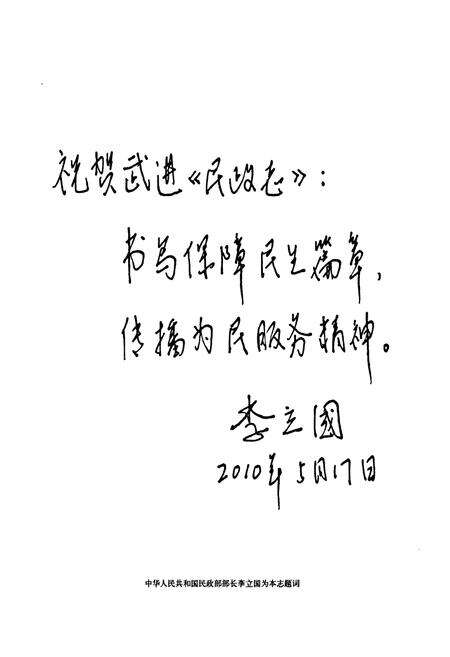 祝贺武进《民政志》：
书写保障民生篇章，
传播为民服务精神。
李立國
2010年5月17日
中华人民共和国民政部部长李立国为本志题词